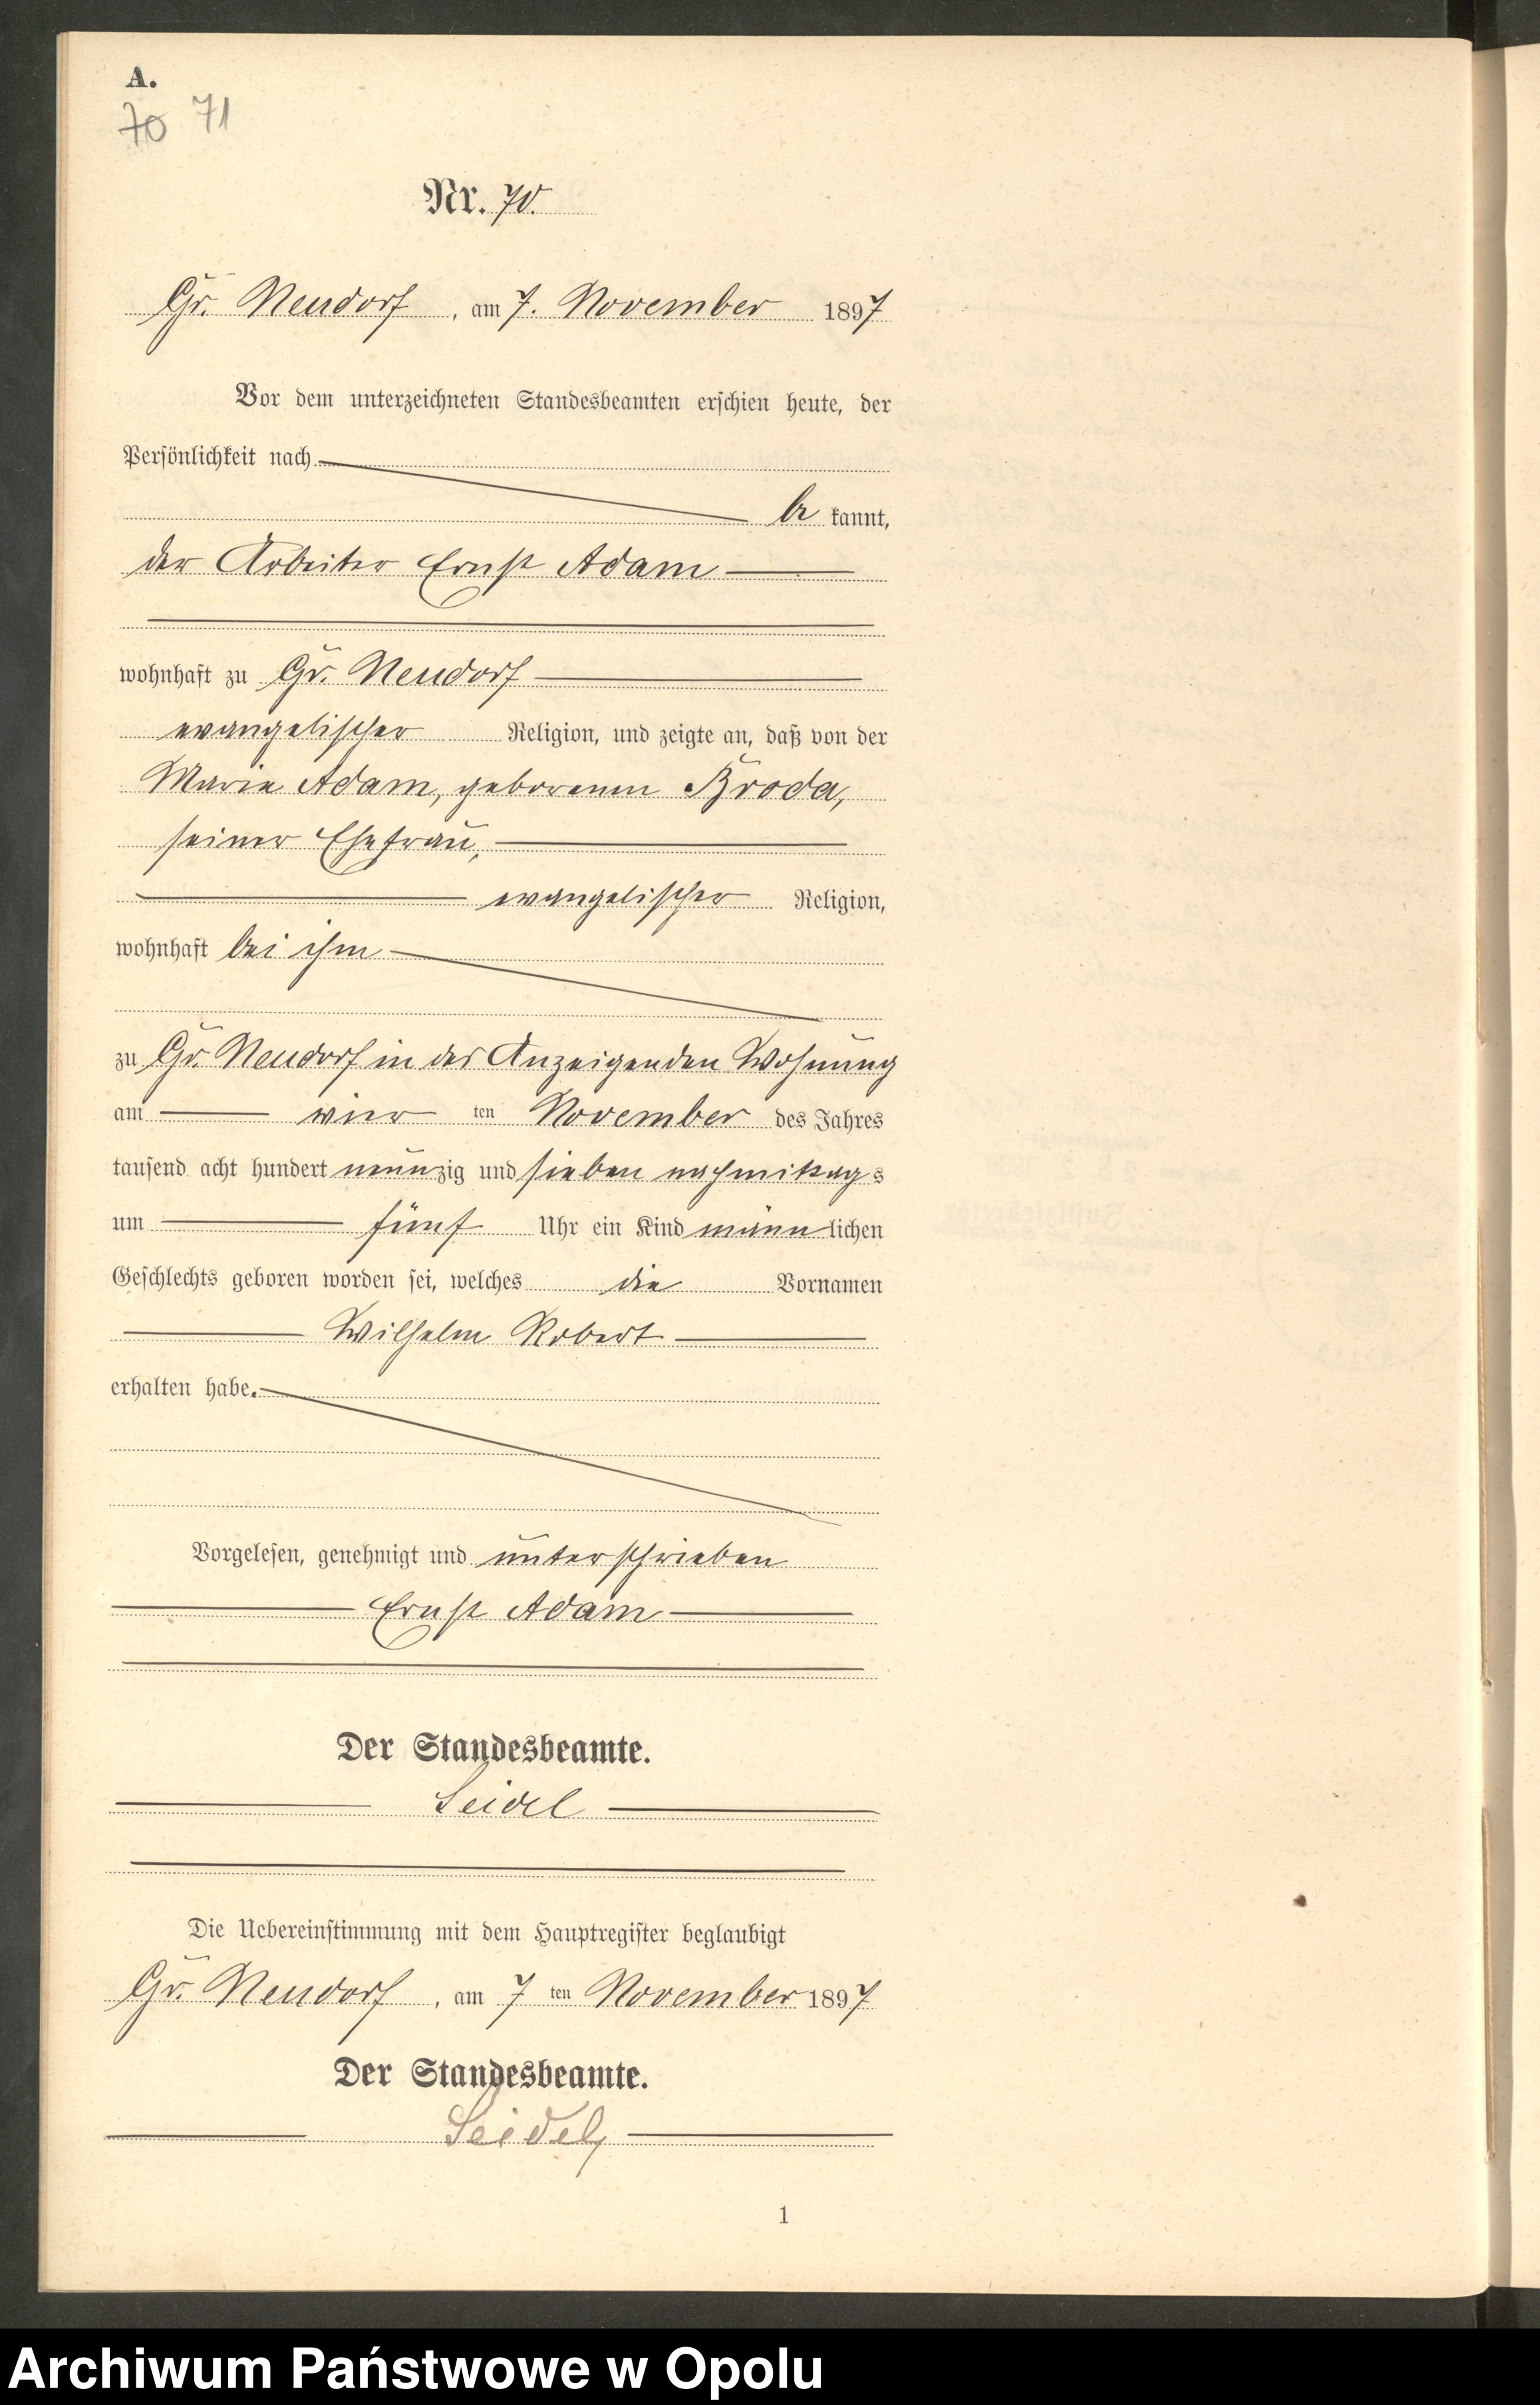 A.
70 71
Nr. 70.
Gr. Neudorf, am 7. November 1897
Vor dem unterzeichneten Standesbeamten erschien heute, der
Persönlichkeit nach
be kannt,
der Arbeiter Ernst Adam
wohnhaft zu Gr. Neudorf
evangelischer Religion, und zeigte an, daß von der
Marie Adam, geborenen Broda,
seiner Ehefrau,
evangelischer Religion,
wohnhaft bei ihm
zu Gr. Neudorf in des Anzeigenden Wohnung
am vier ten November des Jahres
tausend acht hundert neunzig und sieben nachmittags
um fünf Uhr ein Kind männlichen
Geschlechts geboren worden sei, welches die Vornamen
Wilhelm Robert
erhalten habe.
Vorgelesen, genehmigt und unterschrieben
Ernst Adam
Der Standesbeamte.
Seidel
Die Uebereinstimmung mit dem Hauptregister beglaubigt
Gr. Neudorf, am 7 ten November 1897
Der Standesbeamte.
Seidel
1
Archiwum Państwowe w Opolu